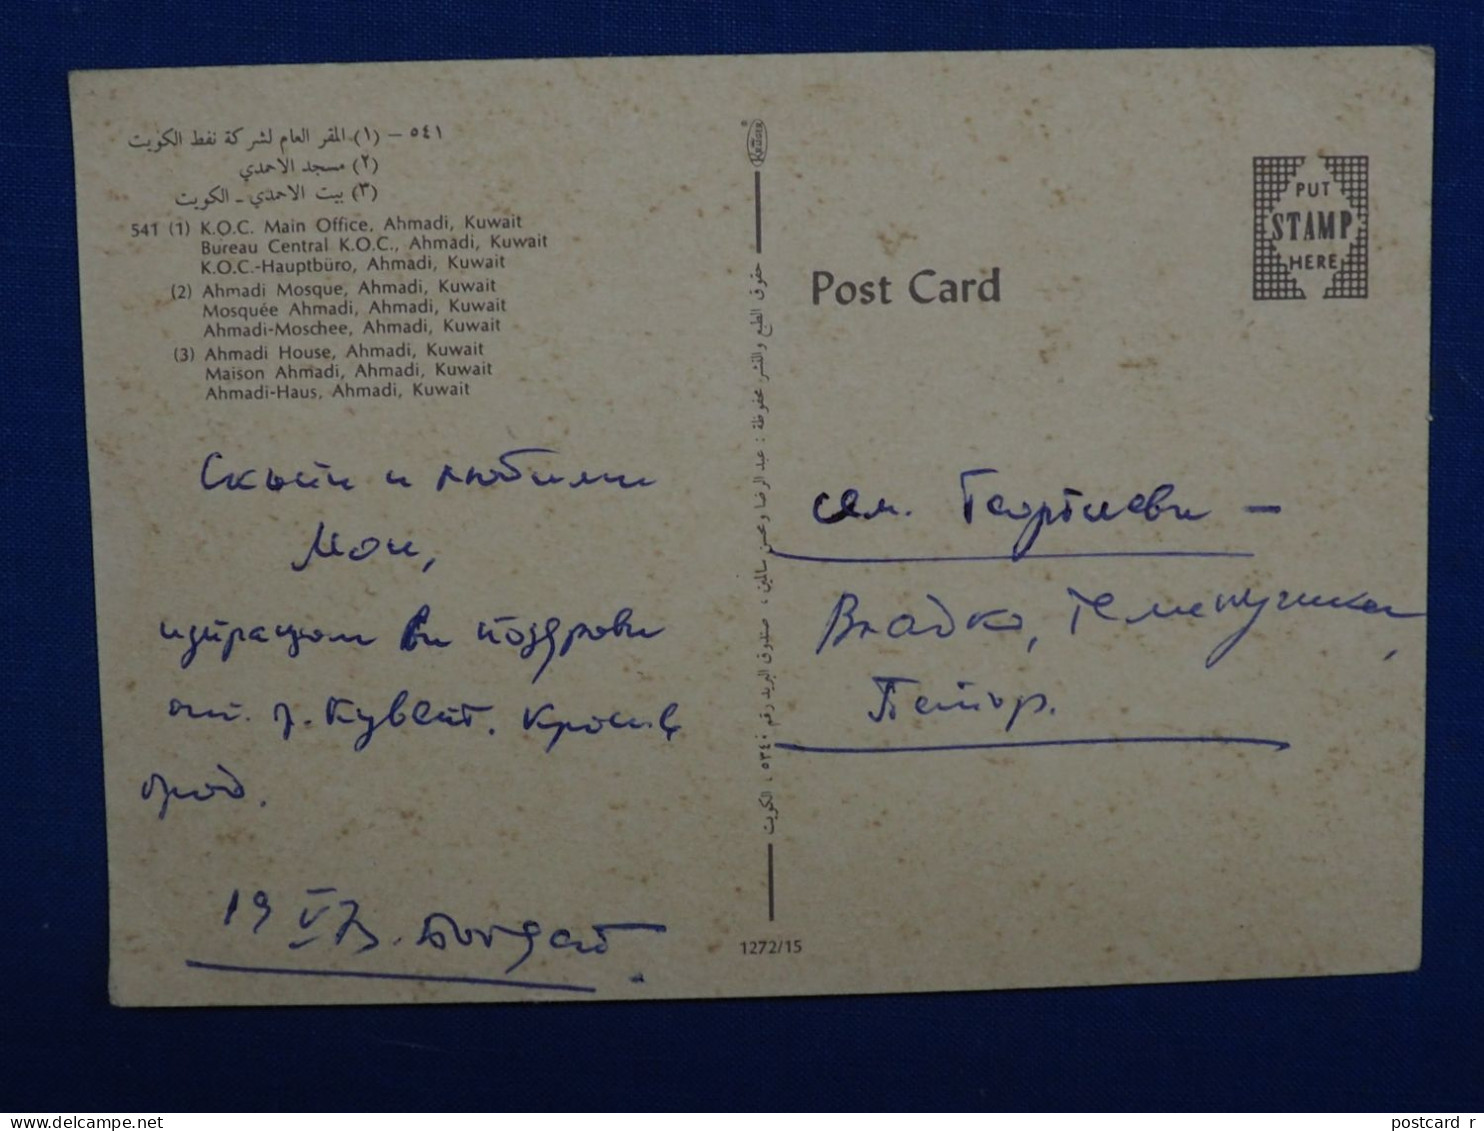 ٥٤١ – (١) المقر العام لشركة نفط الكويت
(٢) مسجد الاحمدي
(٣) بيت الاحمدي - الكويت
541 (1) K.O.C. Main Office, Ahmadi, Kuwait
Bureau Central K.O.C., Ahmadi, Kuwait
K.O.C.-Hauptbüro, Ahmadi, Kuwait
(2) Ahmadi Mosque, Ahmadi, Kuwait
Mosquée Ahmadi, Ahmadi, Kuwait
Ahmadi-Moschee, Ahmadi, Kuwait
(3) Ahmadi House, Ahmadi, Kuwait
Maison Ahmadi, Ahmadi, Kuwait
Ahmadi-Haus, Ahmadi, Kuwait
Скъпи и любими
Мои,
изпращам Ви поздрави
от г. Кувейт. Красив
град.
19 V 73. Богдат.
KRÜGER
حقوق الطبع والنشر محفوظة : عبد الرضا ومحسن سالمين ، صندوق البريد رقم ٥٣٤٠ ، الكويت
1272/15
Post Card
PUT
STAMP
HERE
сем. Георгиеви –
Владко, Теменужка,
Петър.
postcard r